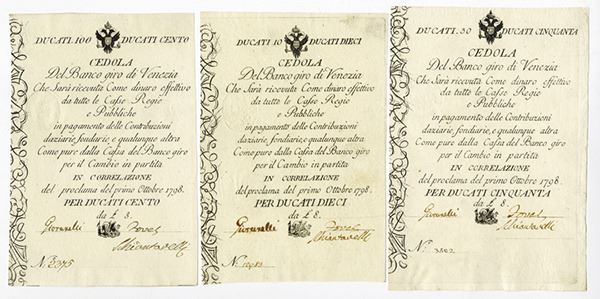 DUCATI.100 DUCATI CENTO
CEDOLA
Del Banco giro di Venezia
Che Sarà ricevuta Come dinaro effettivo
da tutte le Casse Regie
e Pubbliche
in pagamento delle Contribuzioni
daziarie, fondiarie, e qualunque altra
Come pure dalla Cassa del Banco giro
per il Cambio in partita
IN CORRELAZIONE
del proclama del primo Ottobre 1798.
PER DUCATI CENTO
da £ 8.
N. 2375
DUCATI 10 DUCATI DIECI
CEDOLA
Del Banco giro di Venezia
Che Sarà ricevuta Come dinaro effettivo
da tutte le Casse Regie
e Pubbliche
in pagamento delle Contribuzioni
daziarie, fondiarie, e qualunque altra
Come pure dalla Cassa del Banco giro
per il Cambio in partita
IN CORRELAZIONE
del proclama del primo Ottobre 1798.
PER DUCATI DIECI
da £ 8.
N.
DUCATI.50 DUCATI CINQUANTA
CEDOLA
Del Banco giro di Venezia
Che Sarà ricevuta Come dinaro effettivo
da tutte le Casse Regie
e Pubbliche
in pagamento delle Contribuzioni
daziarie, fondiarie, e qualunque altra
Come pure dalla Cassa del Banco giro
per il Cambio in partita
IN CORRELAZIONE
del proclama del primo Ottobre 1798.
PER DUCATI CINQUANTA
da £ 8.
N. 3802